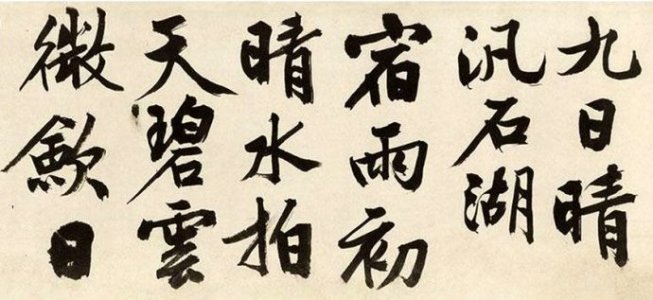 九日晴
汎石湖
宿雨初
晴水拍
天碧雲
微歛日